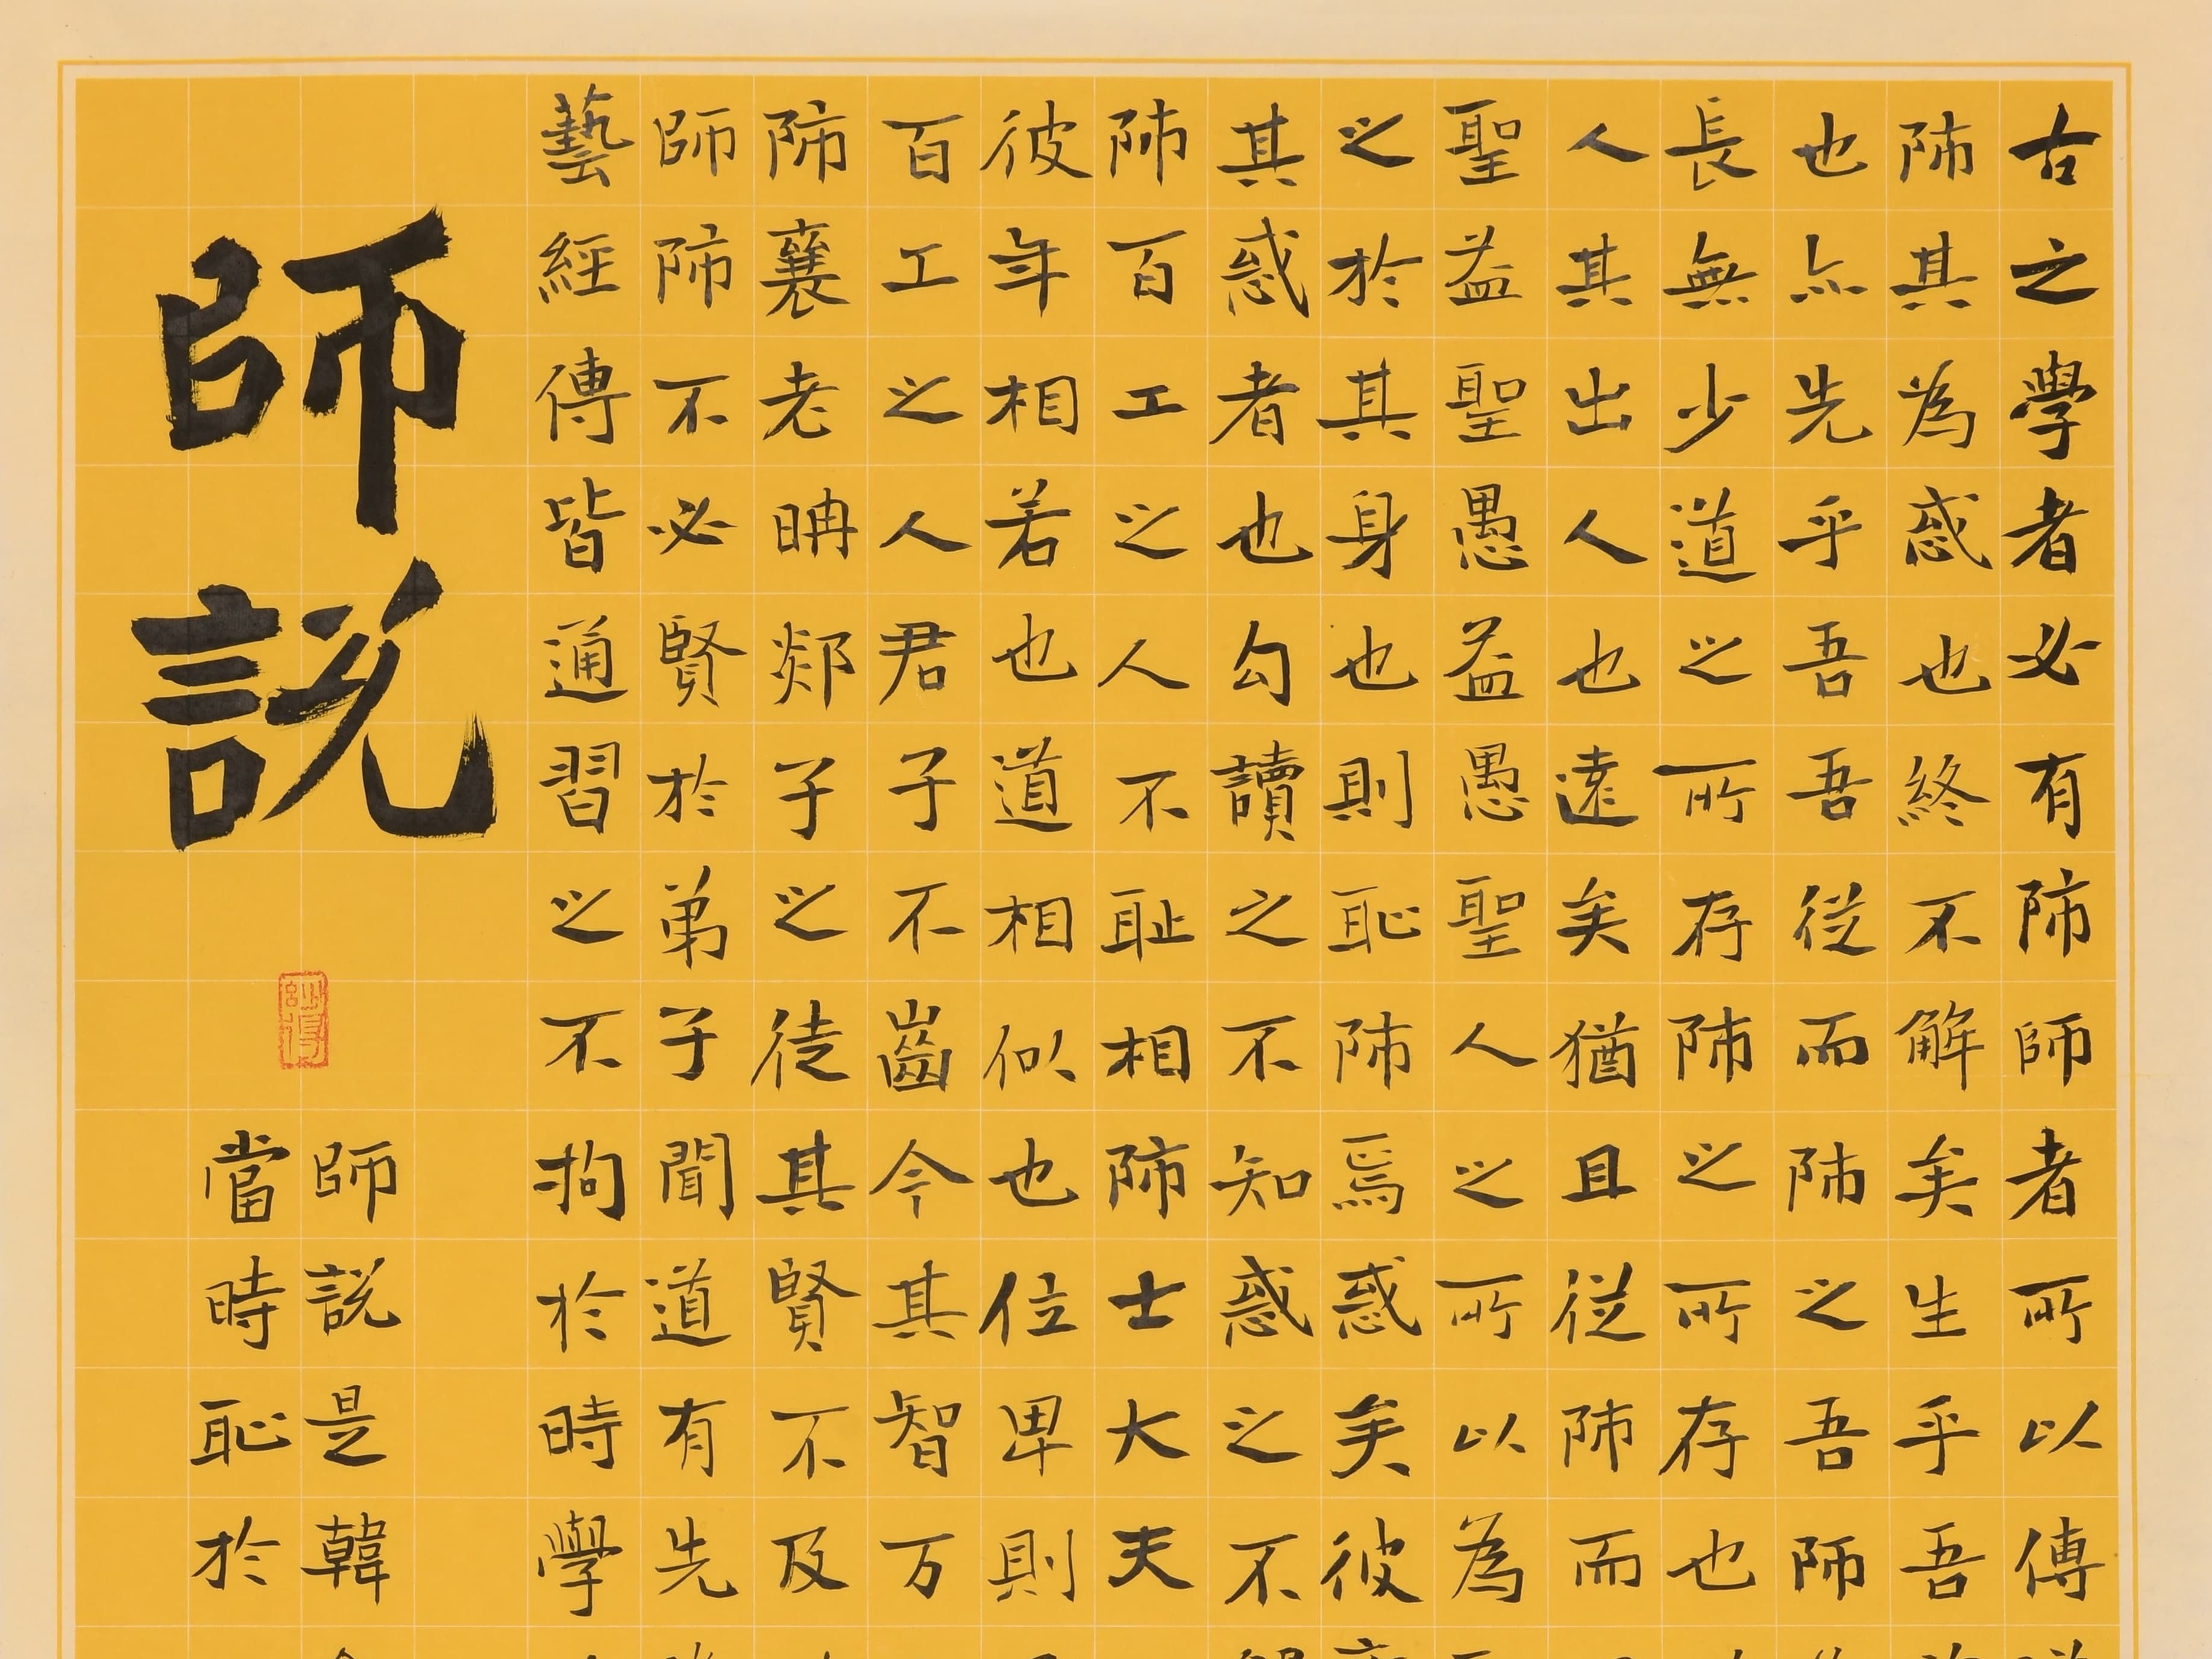 古之學者必有師師者所以傳
師其為惑也終不解矣生乎吾
也亦先乎吾吾從而師之吾師
長無少道之所存師之所存也
人其出人也遠矣猶且從師而
聖益聖愚益愚聖人之所以為
之於其身也則恥師焉惑矣彼
其惑者也句讀之不知惑之不
師百工之人不恥相師士大夫
彼年相若也道相似也位卑則
百工之人君子不齒今其智乃
師襄老聃郯子之徒其賢不及
師師不必賢於弟子聞道有先
藝經傳皆通習之不拘於時學
師説
師説是韓
當時恥於